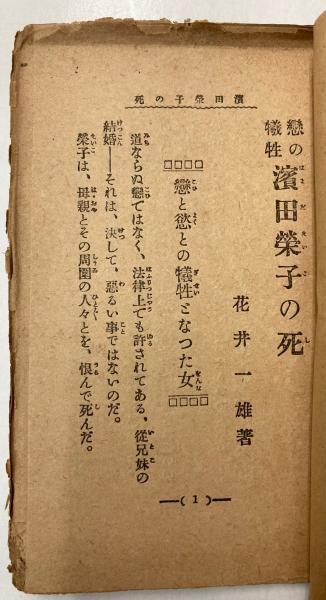 濱田榮子の死
戀の犧牲 濱田榮子の死
花井一雄著
□□□□戀と慾との犧牲となつた女□□□□
道ならぬ戀ではなく、法律上でも許されてある、從兄妹の
結婚――それは、決して、惡るい事ではないのだ。
榮子は、母親とその周圍の人々とを、恨んで死んだ。
―( 1 )―